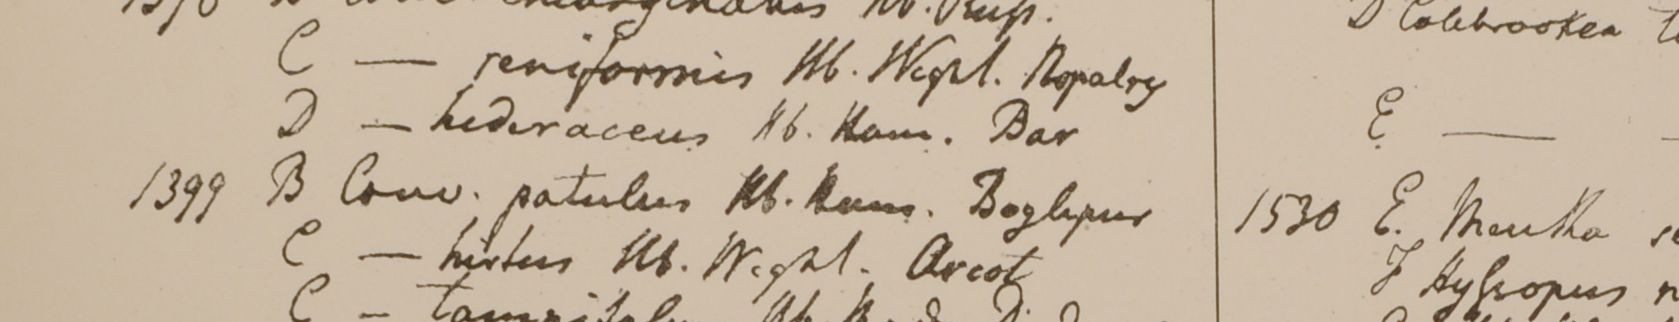 Hb. Russ.
C — reniformis Hb. Wight.
D — hederaceus Hb. Ham. Bar
1399 B Conv. patulus Hb. Ham. Boglipur
C — hirtus Hb. Wight. Arcot
C —
D Colebrookea
E —
1530 E. Mentha
F Hyssopus